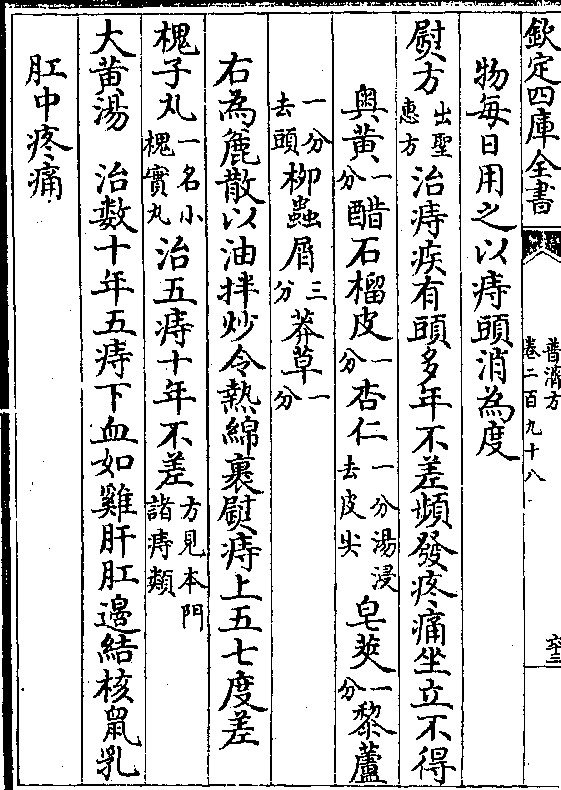 欽定四庫全書
普濟方
卷二百九十八
六十三
物每日用之以痔頭消為度
熨方出聖惠方治痔疾有頭多年不差頻發疼痛坐立不得
輿黃一分醋石榴皮一分杏仁一分湯浸去皮尖皂莢一分藜蘆
一分去頭柳蟲屑三分莽草一分
右為麄散以油拌炒令熱綿裹熨痔上五七度差
槐子丸一名小槐實丸治五痔十年不差方見本門諸痔類
大黄湯　治數十年五痔下血如雞肝肛邊結核鼠乳
肛中疼痛